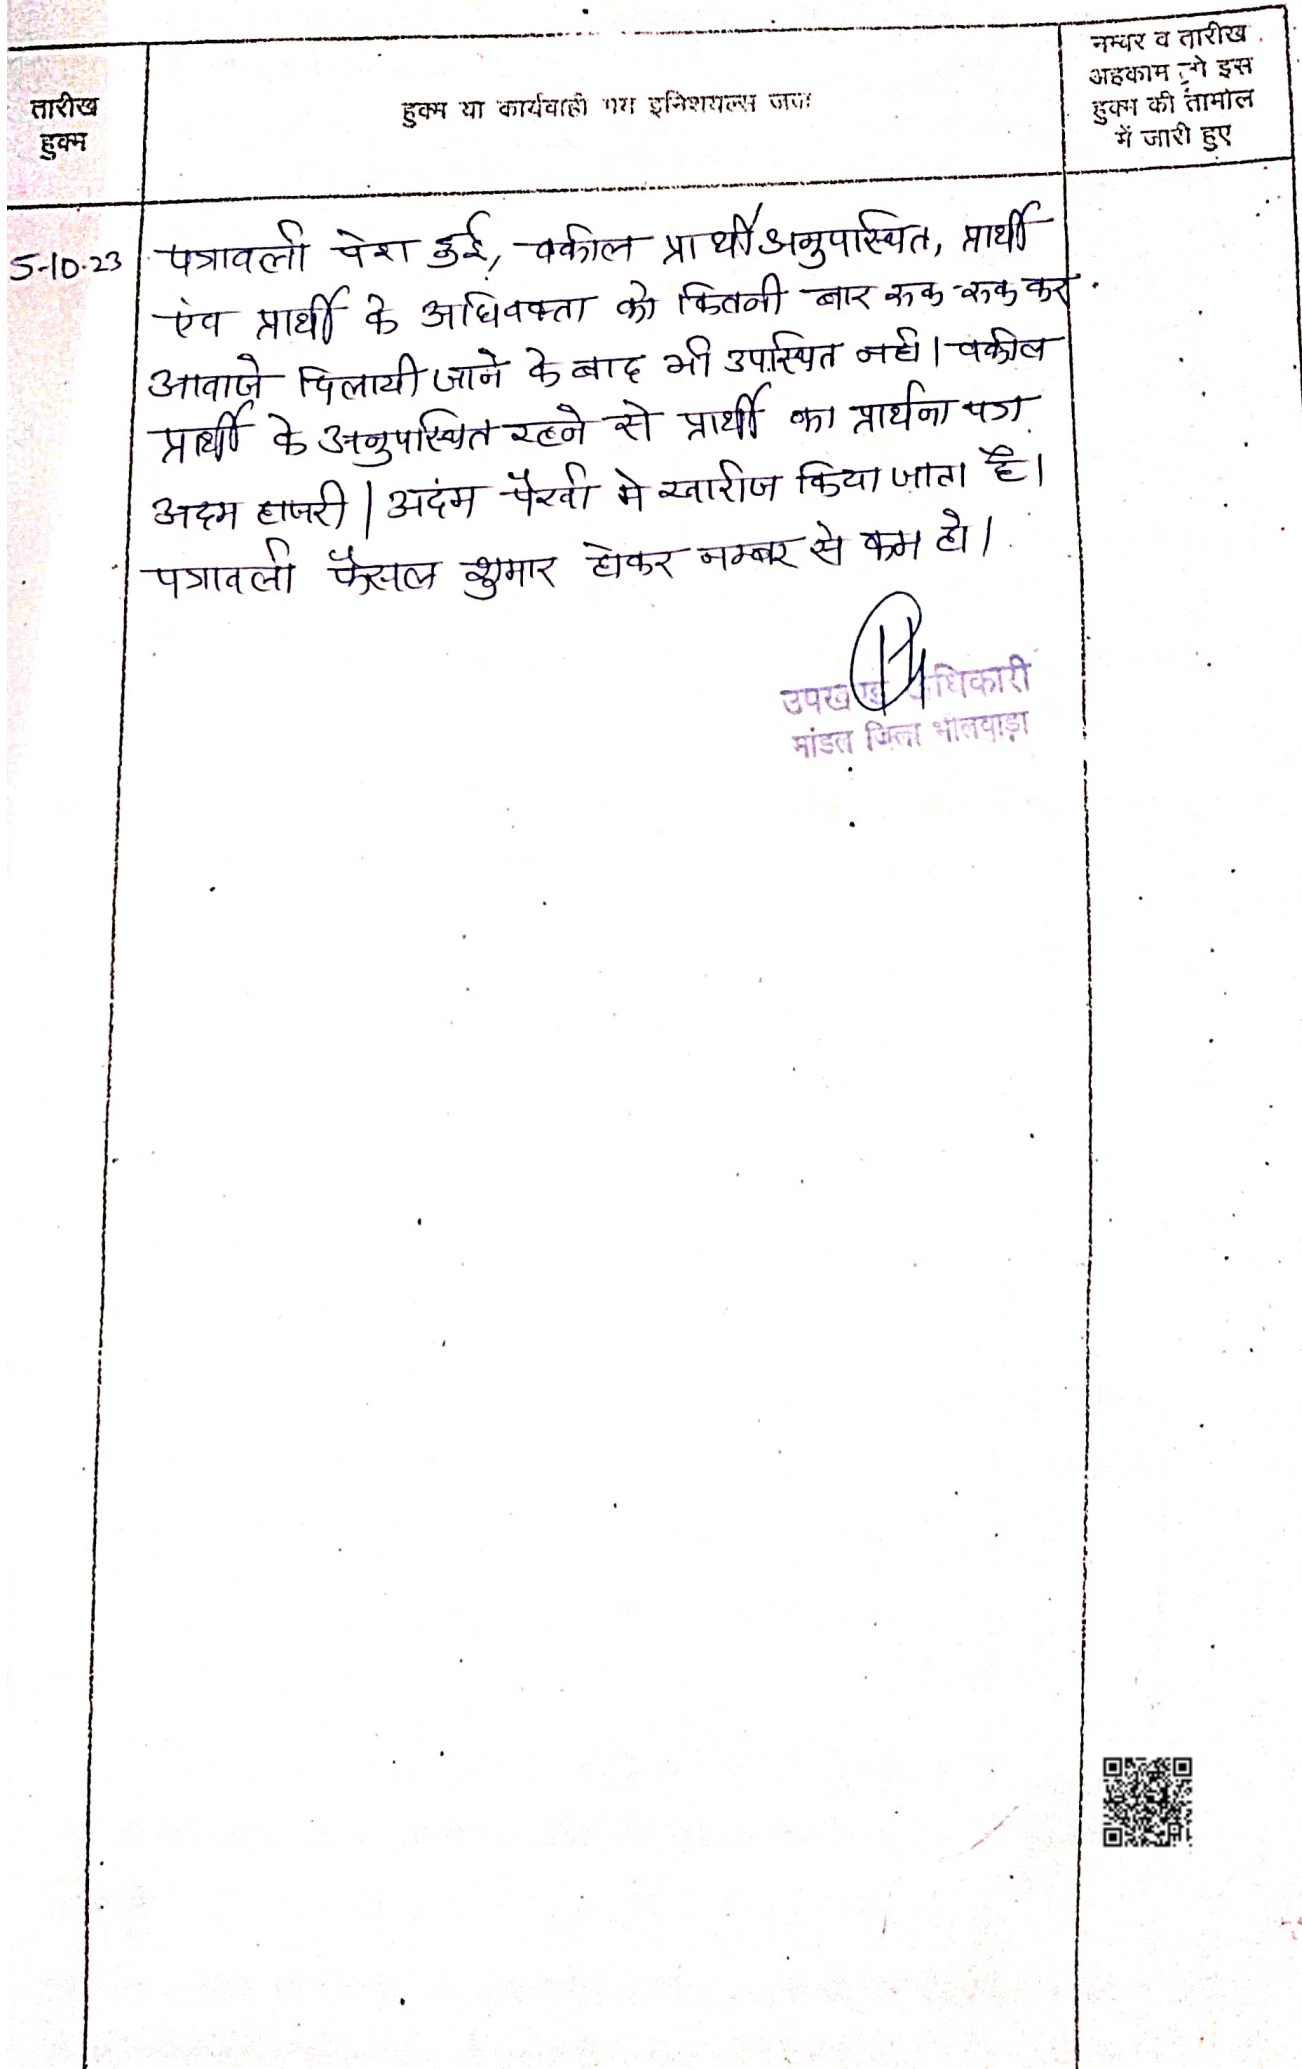 तारीख
हुक्म
हुक्म या कार्यवाही मय इनिशयल्स जज
नम्बर व तारीख
अहकाम जो इस
हुक्म की तामील
में जारी हुए
5-10-23
पत्रावली पेश हुई, वकील प्रार्थी अनुपस्थित, प्रार्थी
एंव प्रार्थी के अधिवक्ता को कितनी बार रूक-रूक कर
आवाजे दिलायी जाने के बाद भी उपस्थित नही। वकील
प्रार्थी के अनुपस्थित रहने से प्रार्थी का प्रार्थना पत्र
अदम हाजरी / अदंम पैरवी मे खारीज किया जाता है।
पत्रावली फैसल शुमार होकर नम्बर से कम हो।
उपखण्ड अधिकारी
मांडल जिला भीलवाड़ा